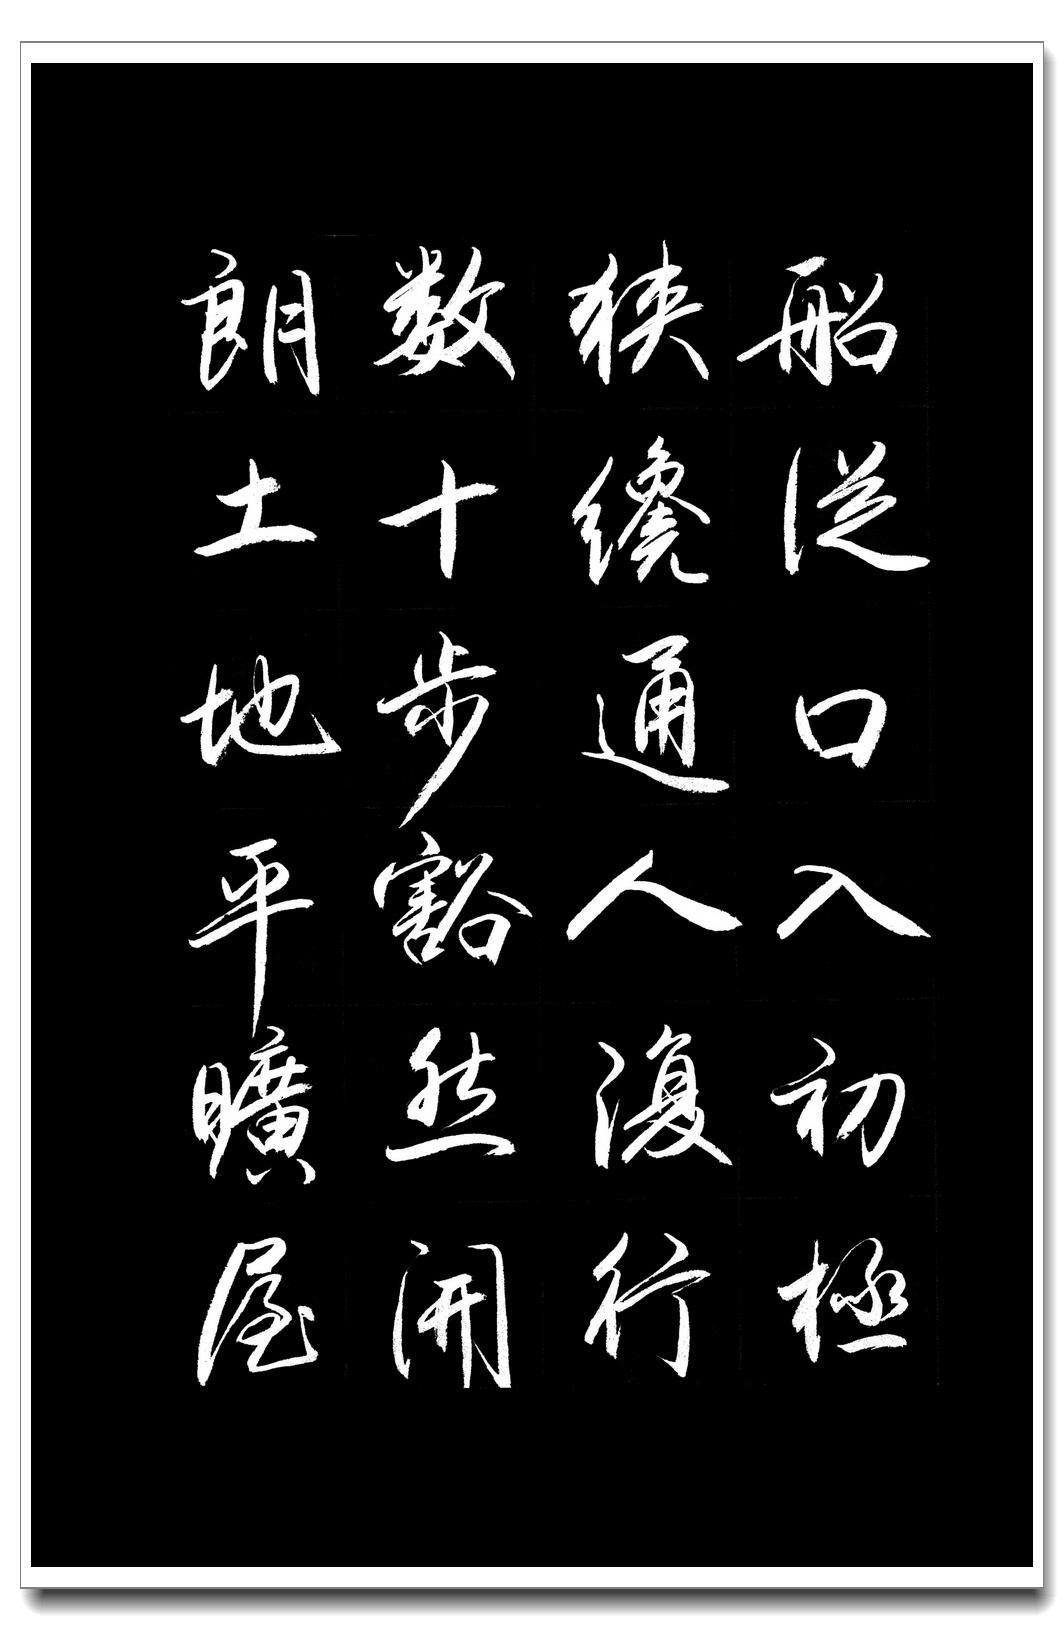 船従口入初極
狭纔通人復行
数十步豁然開
朗土地平曠屋